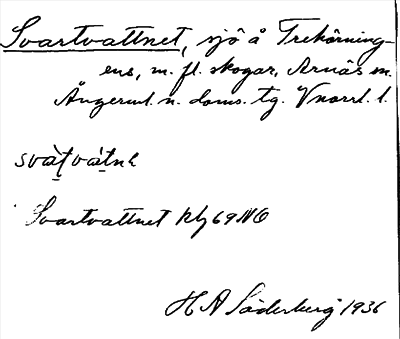 Svartvattnet, sjö å Trekörning-
ens, m. fl. skogar, Arnäs sn.
Ångerml. n. doms. tg. Vnorrl. l.
svàt̬và́tnə
Svartvattnet kbl 69 NO
H A Söderberg 1936